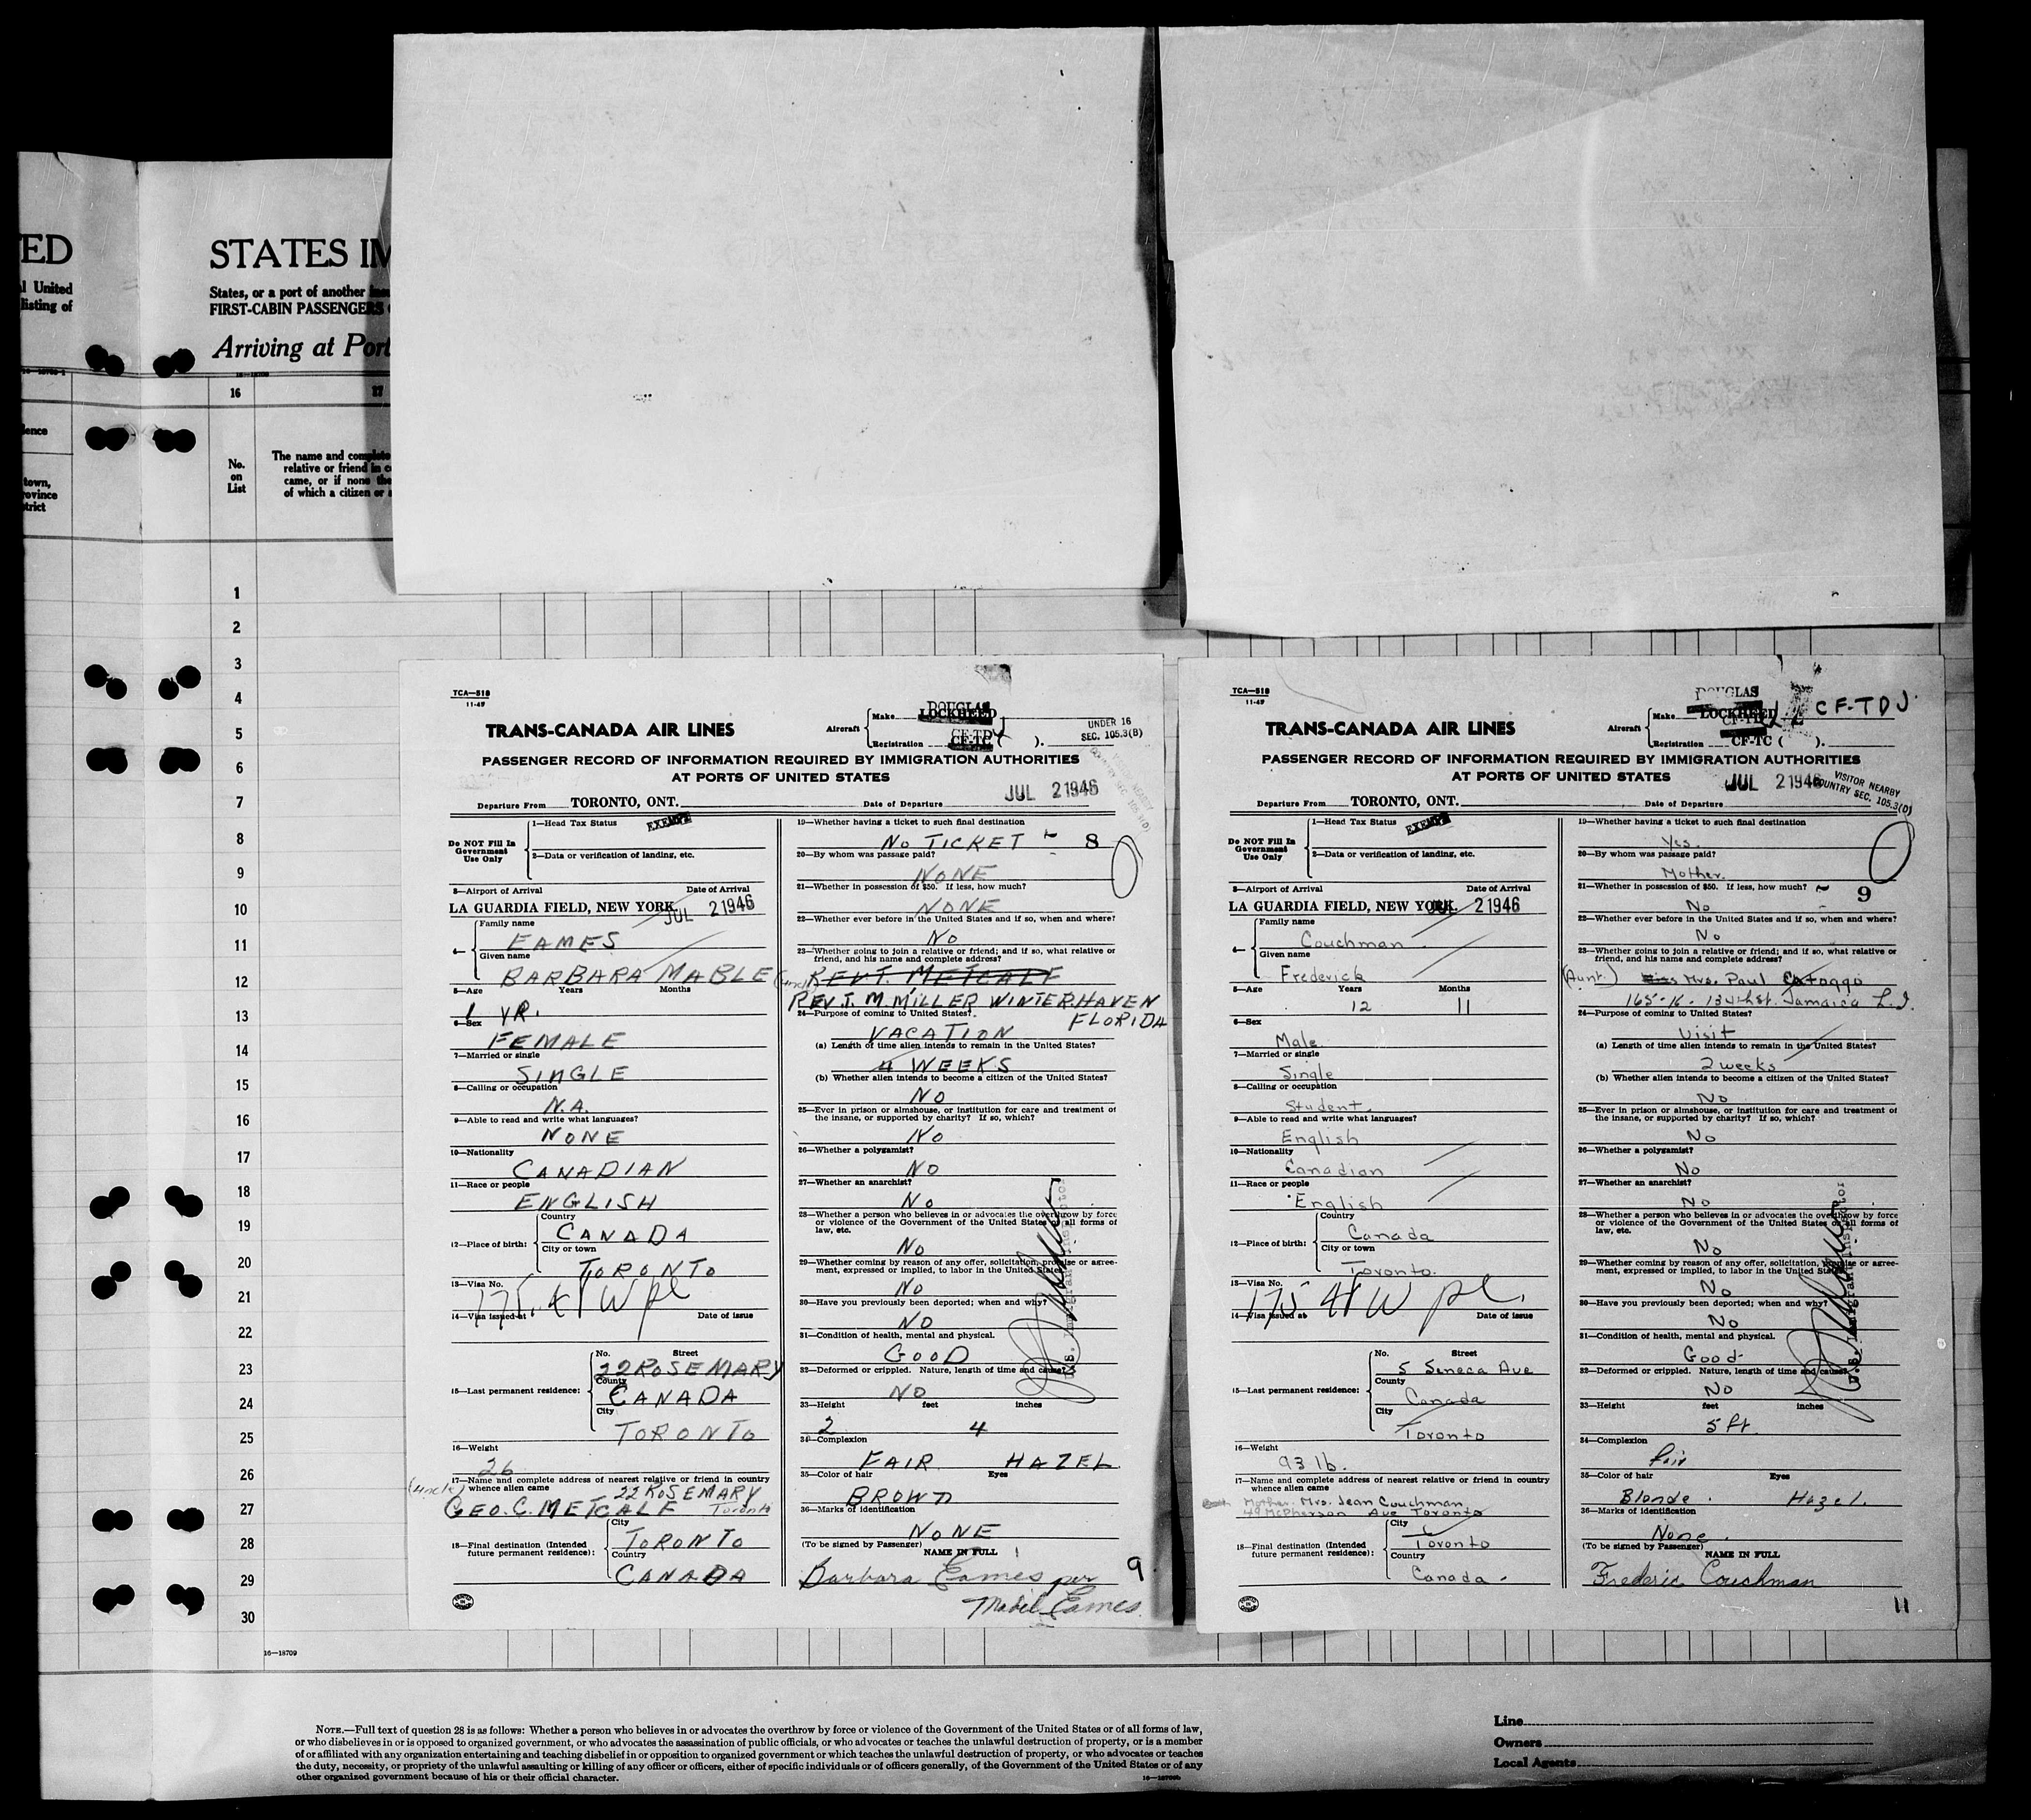 ED
l United
listing of
lence
town,
rovince
strict
STATES IM
States, or a port of another
FIRST-CABIN PASSENGERS
Arriving at Port
16 17
No.
on
List
The name and complete
relative or friend in c
came, or if none the
of which a citizen or
1
2
3
4
5
6
7
8
9
10
11
12
13
14
15
16
17
18
19
20
21
22
23
24
25
26
27
28
29
30
16—18709
TCA—518
11-45
TRANS-CANADA AIR LINES
Aircraft
Make DOUGLAS LOCKHEED
Registration CF-TD CF-TC ( ).
UNDER 16
SEC. 105.3(B)
PASSENGER RECORD OF INFORMATION REQUIRED BY IMMIGRATION AUTHORITIES
AT PORTS OF UNITED STATES
JUL 2 1946
Departure From TORONTO, ONT. Date of Departure
Do NOT Fill In
Government
Use Only
1—Head Tax Status EXEMPT
2—Data or verification of landing, etc.
3—Airport of Arrival Date of Arrival
LA GUARDIA FIELD, NEW YORK. JUL 2 1946
4— Family name
EAMES
Given name
BARBARA MABLE
5—Age Years Months
1 YR.
6—Sex
FEMALE
7—Married or single
SINGLE
8—Calling or occupation
N.A.
9—Able to read and write what languages?
NONE
10—Nationality
CANADIAN
11—Race or people
ENGLISH
12—Place of birth: Country
CANADA
City or town
TORONTO
13—Visa No.
175.41 W pl
14—Visa issued at Date of issue
15—Last permanent residence: No. Street
22 ROSEMARY
County
CANADA
City
TORONTO
16—Weight
26
17—Name and complete address of nearest relative or friend in country
whence alien came
22 ROSEMARY
(uncle) GEO. C. METCALF Toronto
18—Final destination (Intended
future permanent residence):
City
TORONTO
Country
CANADA
19—Whether having a ticket to such final destination
NO TICKET - 8
20—By whom was passage paid?
NONE
21—Whether in possession of $50. If less, how much?
NONE
22—Whether ever before in the United States and if so, when and where?
NO
23—Whether going to join a relative or friend; and if so, what relative or
friend, and his name and complete address?
(uncle) REV. T. METCALF
REV. T. M. MILLER WINTERHAVEN
FLORIDA
24—Purpose of coming to United States?
VACATION
(a) Length of time alien intends to remain in the United States?
4 WEEKS
(b) Whether alien intends to become a citizen of the United States?
NO
25—Ever in prison or almshouse, or institution for care and treatment of
the insane, or supported by charity? If so, which?
NO
26—Whether a polygamist?
NO
27—Whether an anarchist?
NO
28—Whether a person who believes in or advocates the overthrow by force
or violence of the Government of the United States or all forms of
law, etc.
NO
29—Whether coming by reason of any offer, solicitation, promise or agree-
ment, expressed or implied, to labor in the United States
NO
30—Have you previously been deported; when and why?
NO
31—Condition of health, mental and physical.
GOOD
32—Deformed or crippled. Nature, length of time and cause?
NO
33—Height feet inches
2 4
34—Complexion
FAIR HAZEL
35—Color of hair Eyes
BROWN
36—Marks of identification
NONE
(To be signed by Passenger) NAME IN FULL
Barbara Eames per 9
Mabel Eames
U.S. Immigrant Inspector
TCA—518
11-45
TRANS-CANADA AIR LINES
Aircraft
Make DOUGLAS LOCKHEED CF-TDJ
Registration CF-TC ( ).
PASSENGER RECORD OF INFORMATION REQUIRED BY IMMIGRATION AUTHORITIES
AT PORTS OF UNITED STATES
JUL 2 1946
VISITOR NEARBY
COUNTRY SEC. 105.3(D)
Departure From TORONTO, ONT. Date of Departure
Do NOT Fill In
Government
Use Only
1—Head Tax Status EXEMPT
2—Data or verification of landing, etc.
3—Airport of Arrival Date of Arrival
LA GUARDIA FIELD, NEW YORK. JUL 2 1946
4— Family name
Couchman
Given name
Frederick
5—Age Years Months
12 11
6—Sex
Male
7—Married or single
Single
8—Calling or occupation
Student.
9—Able to read and write what languages?
English
10—Nationality
Canadian
11—Race or people
English
12—Place of birth: Country
Canada
City or town
Toronto.
13—Visa No.
175 41 W pl.
14—Visa issued at Date of issue
15—Last permanent residence: No. Street
5 Seneca Ave
County
Canada
City
Toronto
16—Weight
93 lb.
17—Name and complete address of nearest relative or friend in country
whence alien came
Mother. Mrs. Jean Couchman
49 McPherson Ave Toronto
18—Final destination (Intended
future permanent residence):
City
Toronto
Country
Canada.
19—Whether having a ticket to such final destination
Yes.
20—By whom was passage paid?
Mother.
21—Whether in possession of $50. If less, how much? - 9
No
22—Whether ever before in the United States and if so, when and where?
No
23—Whether going to join a relative or friend; and if so, what relative or
friend, and his name and complete address?
(Aunt.) Mrs. Paul
165-16-134th st. Jamaica L.I.
24—Purpose of coming to United States?
Visit
(a) Length of time alien intends to remain in the United States?
2 weeks
(b) Whether alien intends to become a citizen of the United States?
No
25—Ever in prison or almshouse, or institution for care and treatment of
the insane, or supported by charity? If so, which?
No
26—Whether a polygamist?
No
27—Whether an anarchist?
No
28—Whether a person who believes in or advocates the overthrow by force
or violence of the Government of the United States or all forms of
law, etc.
No
29—Whether coming by reason of any offer, solicitation, promise or agree-
ment, expressed or implied, to labor in the United States
No
30—Have you previously been deported; when and why?
No
31—Condition of health, mental and physical.
Good
32—Deformed or crippled. Nature, length of time and cause?
No
33—Height feet inches
5 ft.
34—Complexion
fair
35—Color of hair Eyes
Blonde. Hazel.
36—Marks of identification
None.
(To be signed by Passenger) NAME IN FULL
Frederic Couchman
11
U.S. Immigrant Inspector
NOTE.—Full text of question 28 is as follows: Whether a person who believes in or advocates the overthrow by force or violence of the Government of the United States or of all forms of law,
or who disbelieves in or is opposed to organized government, or who advocates the assassination of public officials, or who advocates or teaches the unlawful destruction of property, or is a member
of or affiliated with any organization entertaining and teaching disbelief in or opposition to organized government or which teaches the unlawful destruction of property, or who advocates or teaches
the duty, necessity, or propriety of the unlawful assaulting or killing of any officer or officers, either of specific individuals or of officers generally, of the Government of the United States or of any
other organized government because of his or their official character.
Line
Owners
Local Agents